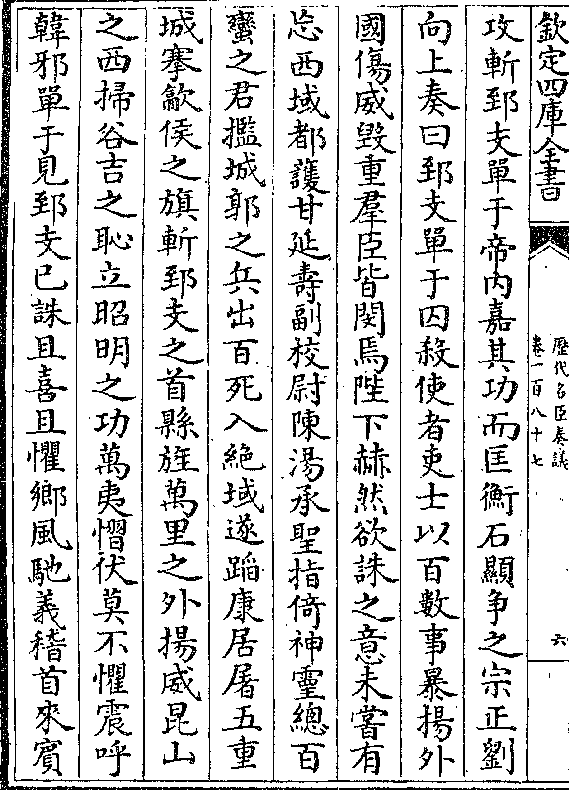 欽定四庫全書
歷代名臣奏議
卷一百八十七
六
攻斬郅支單于帝内嘉其功而匡衡石顯争之宗正劉
向上奏曰郅支單于囚殺使者吏士以百數事暴揚外
國傷威毁重羣臣皆閔焉陛下赫然欲誅之意未嘗有
忘西域都護甘延壽副校尉陳湯承聖指倚神靈總百
蠻之君攬城郭之兵出百死入絶域遂蹈康居屠五重
城搴歙侯之旗斬郅支之首縣旌萬里之外揚威昆山
之西掃谷吉之恥立昭明之功萬夷慴伏莫不懼震呼
韓邪單于見郅支已誅且喜且懼鄉風馳義稽首來賓